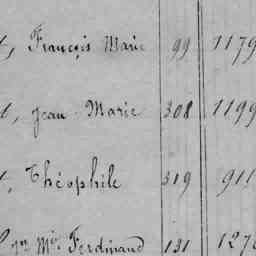 t, François Marie 99 1179
t, Jean-Marie 308 1199
t, Théophile 319 911
Ferdinand 131 127